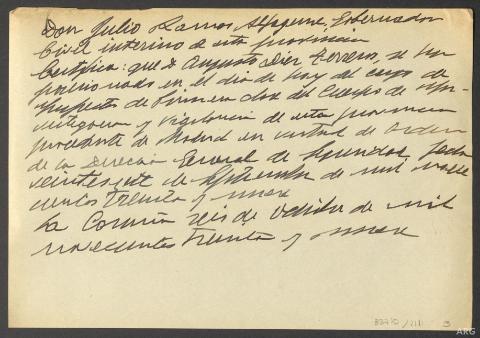 Don Julio Ramos, Alfageme, Gobernador
Civil interino de esta provincia
Certifico: que D. Augusto Diez Ferrero, se ha
posesionado en el día de hoy del cargo de
de Primera clase del Cuerpo de
y Vigilancia de esta provincia
procedente de Madrid en virtud de orden
de la Dirección General de Seguridad fecha
veintesiete de Septiembre de mil nove
cientos treinta y
La Coruña seis de Octubre de mil
novecientos treinta y
ARG